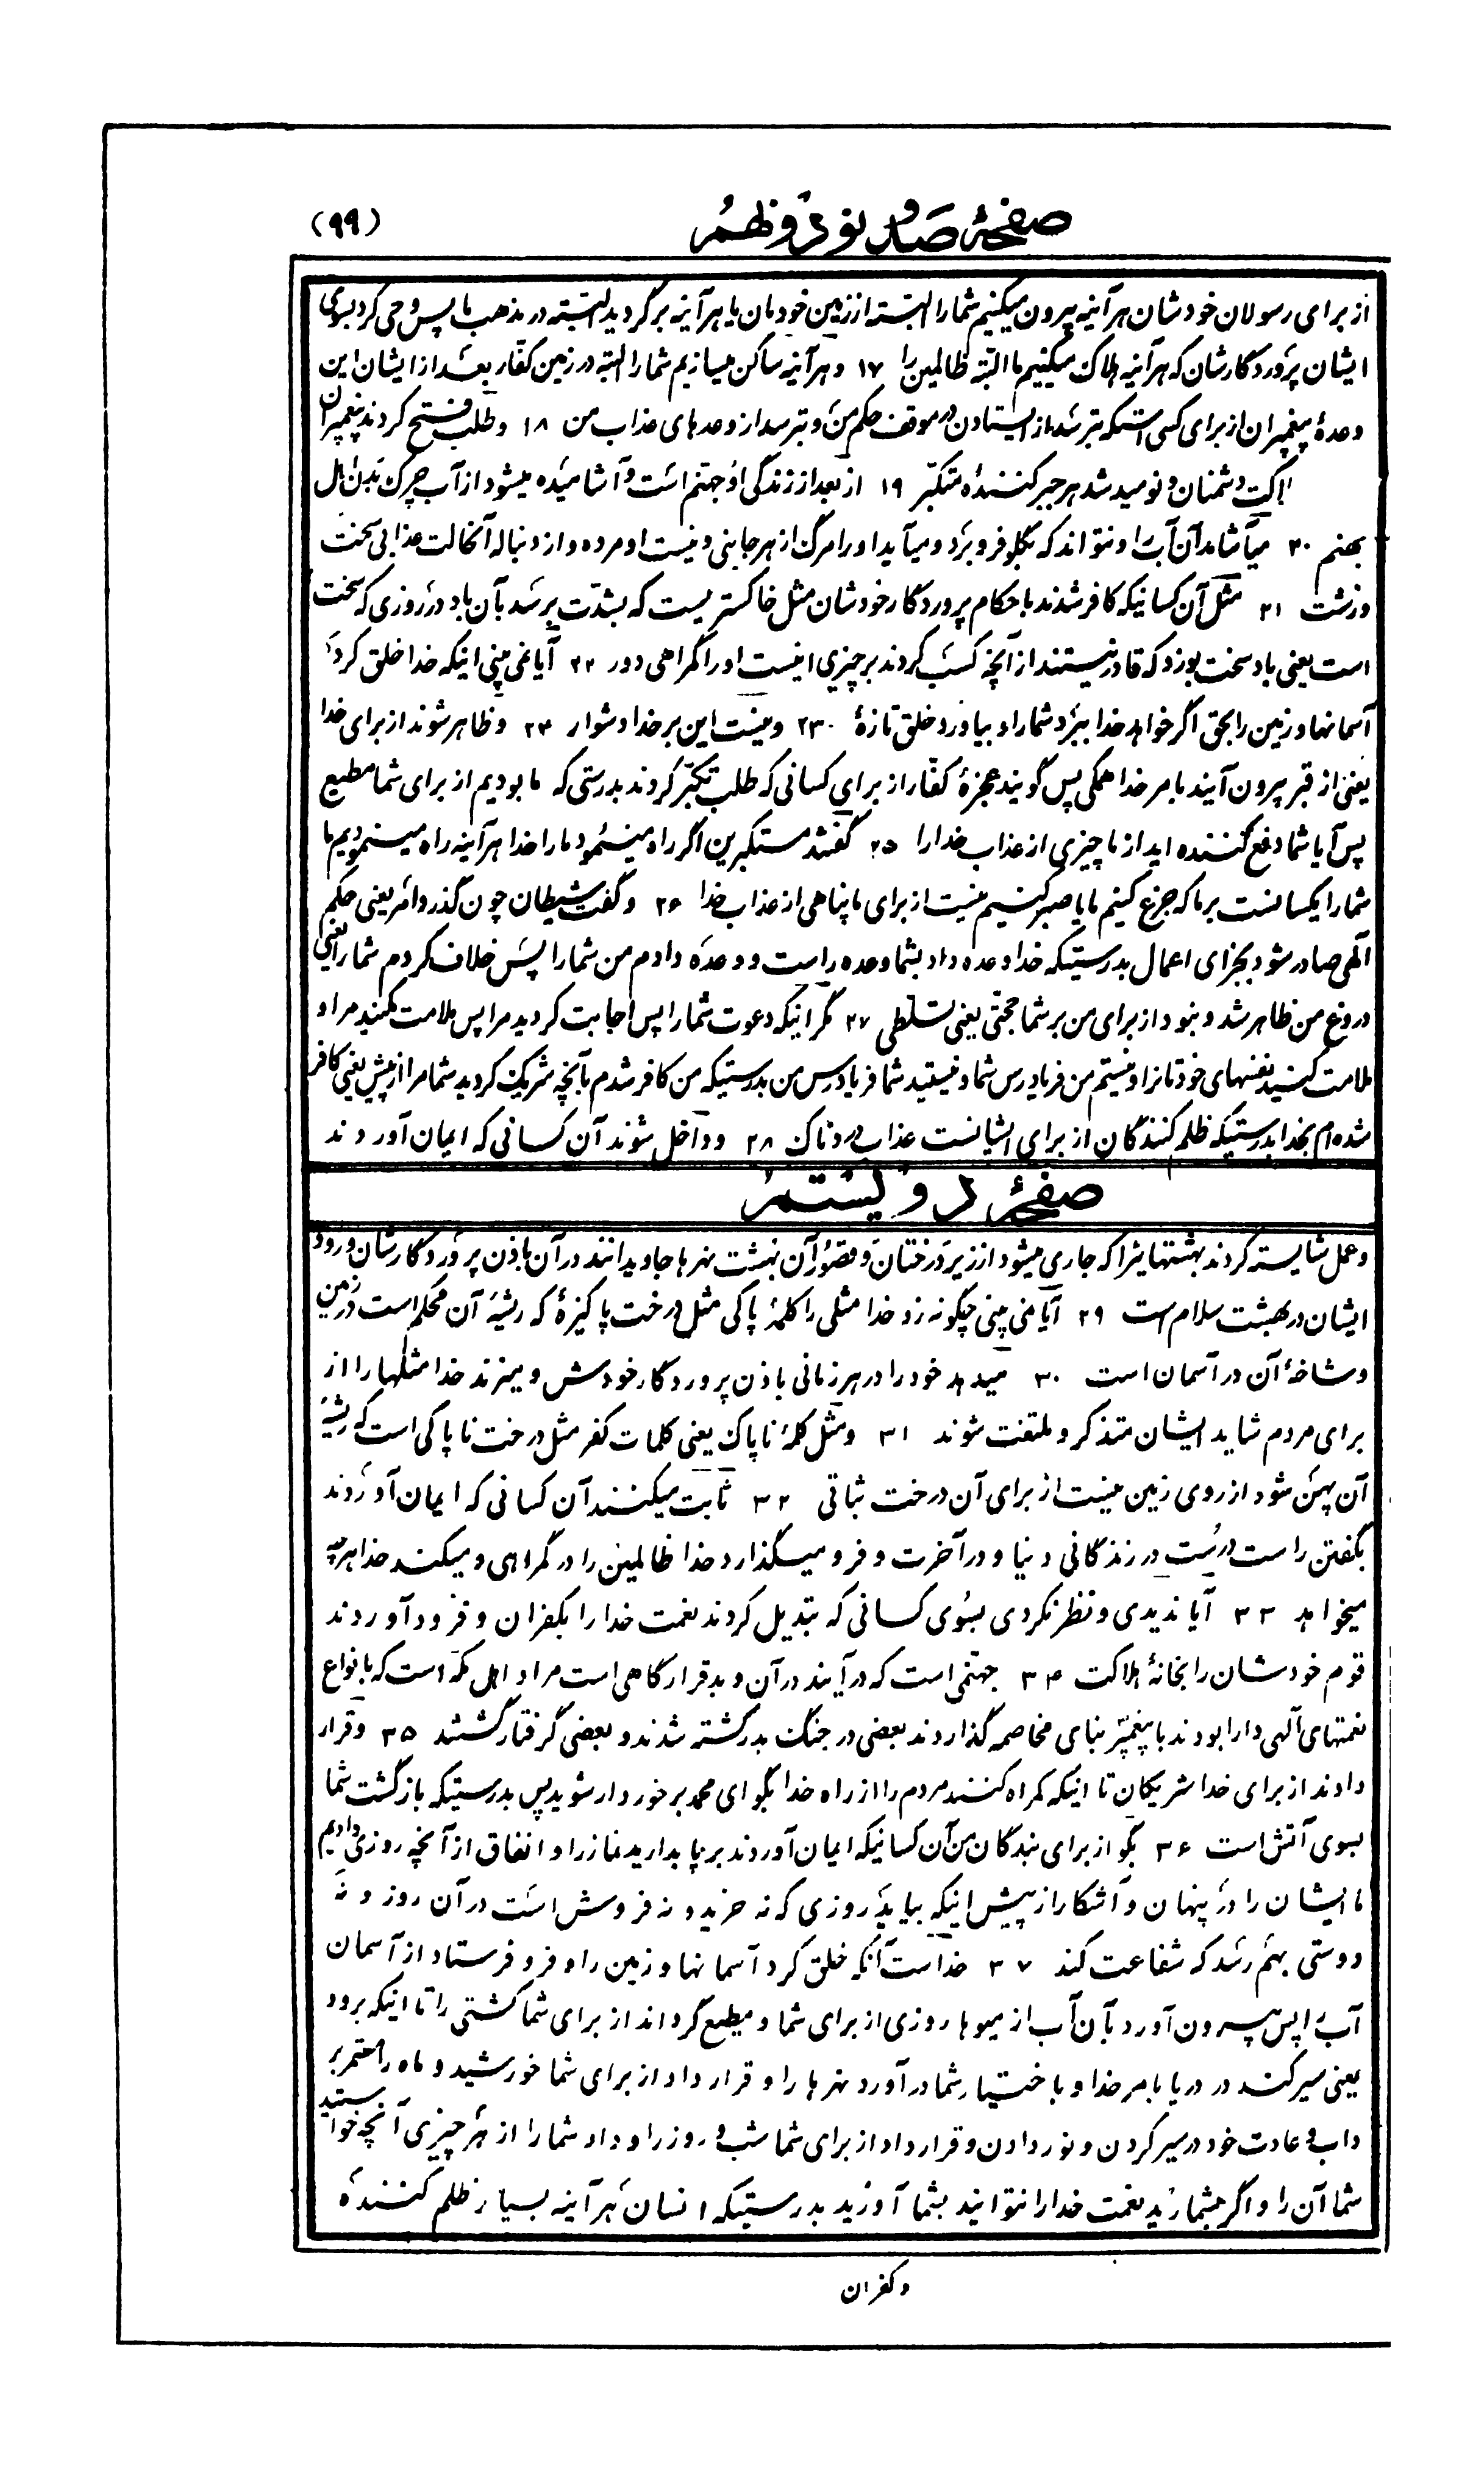 صفحهٔ صد و نود و نهم
(۹۹)
از برای رسولان خودشان هرآینه بیرون میکنیم شما را البتّه از زمین خودمان یا هرآینه برگردید البتّه در مذهب ما پس وحی کرد بسوی
ایشان پروردگارشان که هرآینه هلاک میکنیم ما البتّه ظالمین را ۱۷ و هرآینه ساکن میسازیم شما را البته در زمین کفّار بعد از ایشان این
وعدهٔ پیغمبران از برای کسی استکه بترسد از ایستادن در موقف حکم من و بترسد از وعدهای عذاب من ۱۸ و طلب فتح کردند پیغمبران
هلاکت دشمنان و نومید شد هر جبر کنندهٔ متکبّر ۱۹ از بعد از زندگی او جهنّم است و آشامیده میشود از آب چرک بدن اهل
جهنم ۲۰ میآشامد آن آب را و نتواند که بگلو فرو برد و میآید او را مرگ از هر جانبی و نیست او مرده و از دنباله آنحالت عذابی سخت
و زشت ۲۱ مثل آن کسانیکه کافر شدند باحکام پروردگار خودشان مثل خاکستریست که بشدّت برسد بآن باد در روزی که سخت
است یعنی باد سخت بوزد که قادر نیستند از آنچه کسب کردند بر چیزی اینست او را گمراهی دور ۲۲ آیا نمی بینی اینکه خدا خلق کرد
آسمانها و زمین را بحق اگر خواهد خدا ببرد شما را و بیاورد خلق تازهٔ ۲۳ و نیست این بر خدا دشوار ۲۴ و ظاهر شوند از برای خدا
یعنی از قبر بیرون آیند بامر خدا همگی پس گویند عجزهٔ کفّار از برای کسانی که طلب تکبّر کردند بدرستی که ما بودیم از برای شما مطیع
پس آیا شما دفع کننده اید از ما چیزی از عذاب خدا را ۲۵ گفتند مستکبرین اگر راه مینمود ما را خدا هرآینه راه مینمودیم ما
شما را یکسانست بر ما که جزع کنیم ما یا صبر کنیم نیست از برای ما پناهی از عذاب خدا ۲۶ و گفت شیطان چون گذرد امر یعنی حکم
الهی صادر شود بجزای اعمال بدرستیکه خدا وعده داد بشما وعده راست و وعده دادم من شما را پس خلاف کردم شما را یعنی
دروغ من ظاهر شد و نبود از برای من بر شما حجّتی یعنی تسلّطی ۲۷ مگر اینکه دعوت شما را پس اجابت کردید مرا پس ملامت مکنید مرا و
ملامت کنید نفسهای خودتانرا و نیستم من فریادرس شما و نیستید شما فریادرس من بدرستیکه من کافر شدم بآنچه شریک کردید شما مرا از پیش یعنی کافر
شده ام بخدا بدرستیکه ظلم کنندگان از برای ایشانست عذاب دردناک ۲۸ و داخل شوند آن کسانی که ایمان آوردند
صفحهٔ دویستم
و عمل شایسته کردند بهشتهایرا که جاری میشود از زیر درختان و قصور آن بهشت نهرها جاویدانند در آن باذن پروردگارشان ورود
ایشان در بهشت سلام است ۲۹ آیا نمی بینی چگونه زد خدا مثلی را کلمهٔ پاکی مثل درخت پاکیزهٔ که ریشهٔ آن محکم است در زمین
و شاخهٔ آن در آسمان است ۳۰ میدهد خود را در هر زمانی باذن پروردگار خودش و میزند خدا مثلها را از
برای مردم شاید ایشان متذکر و ملتفت شوند ۳۱ و مثل کلمهٔ ناپاک یعنی کلمات کفر مثل درخت ناپاکی است که ریشهٔ
آن پهن شود از روی زمین نیست از برای آن درخت ثباتی ۳۲ ثابت میکنند آن کسانی که ایمان آوردند
بگفتن راست درست در زندگانی دنیا و در آخرت و فرو میگذارد خدا ظالمین را در گمراهی و میکند خدا هرچه
میخواهد ۳۳ آیا ندیدی و نظر نکردی بسوی کسانی که تبدیل کردند نعمت خدا را بکفران و فرود آوردند
قوم خودشان را بخانهٔ هلاکت ۳۴ جهنّمی است که درآیند در آن و بد قرارگاهی است مراد اهل مکّه است که بانواع
نعمتهای الهی دارا بودند با پیغمبر بنای مخاصمه گذاردند بعضی در جنگ بدر کشته شدند و بعضی گرفتار گشتند ۳۵ و قرار
دادند از برای خدا شریکان تا اینکه گمراه کنند مردم را از راه خدا بگو ای محمد برخوردار شوید پس بدرستیکه بازگشت شما
بسوی آتش است ۳۶ بگو از برای بندگان من آن کسانیکه ایمان آوردند برپا بدارید نماز را و انفاق از آنچه روزی دادیم
ما ایشان را در پنهان و آشکار از پیش اینکه بیاید روزی که نه خرید و نه فروش است در آن روز و نه
دوستی بهم رسد که شفاعت کند ۳۷ خداست آنکه خلق کرد آسمانها و زمین را و فرو فرستاد از آسمان
آب را پس بیرون آورد بآن آب از میوها روزی از برای شما و مطیع گرداند از برای شما کشتی را تا اینکه برود
یعنی سیر کند در دریا بامر خدا و باختیار شما درآورد نهرها را و قرار داد از برای شما خورشید و ماه را مستمر بر
داب و عادت خود در سیر کردن و نور دادن و قرار داد از برای شما شب و روز را و داد شما را از هر چیزی آنچه خواستید
شما آن را و اگر بشمارید نعمت خدا را نتوانید بشما آورید بدرستیکه انسان هرآینه بسیار ظلم کنندهٔ
و کفران